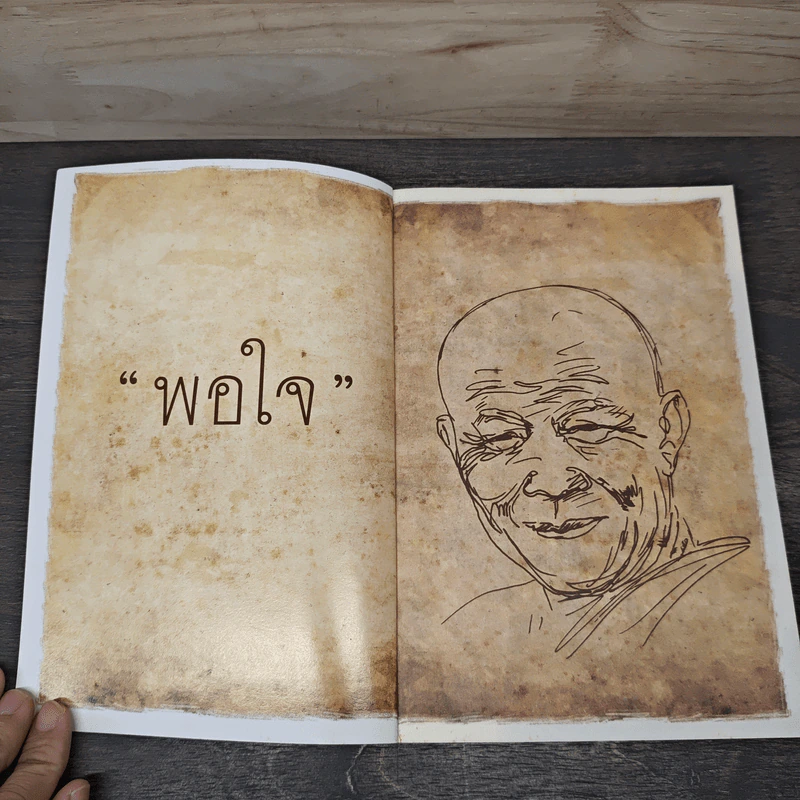 “พอใจ”